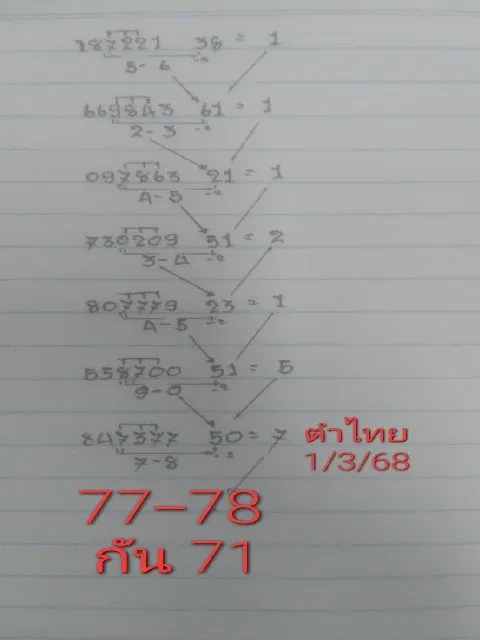 187221 38 = 1
5-6 ÷2
669843 61 = 1
2-3 ÷2
097863 21 = 1
4-5 ÷2
730209 51 = 2
3-4 ÷2
807779 23 = 1
4-5 ÷2
558700 51 = 5
9-0 ÷2
847377 50 = 7
7-8 ÷2
ตำไทย
1/3/68
77-78
กัน 71